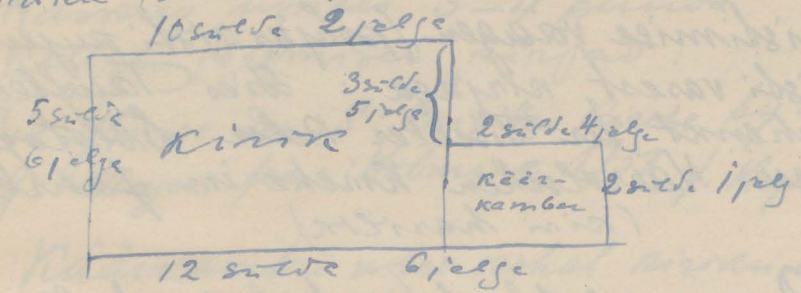 10 sülda 2 jalga
5 sülda
6 jalga
Kirik
3 sülda
5 jalga
2 sülda 4 jalga
Käär-
kamber
2 sülda 1 jalg
12 sülda 6 jalga